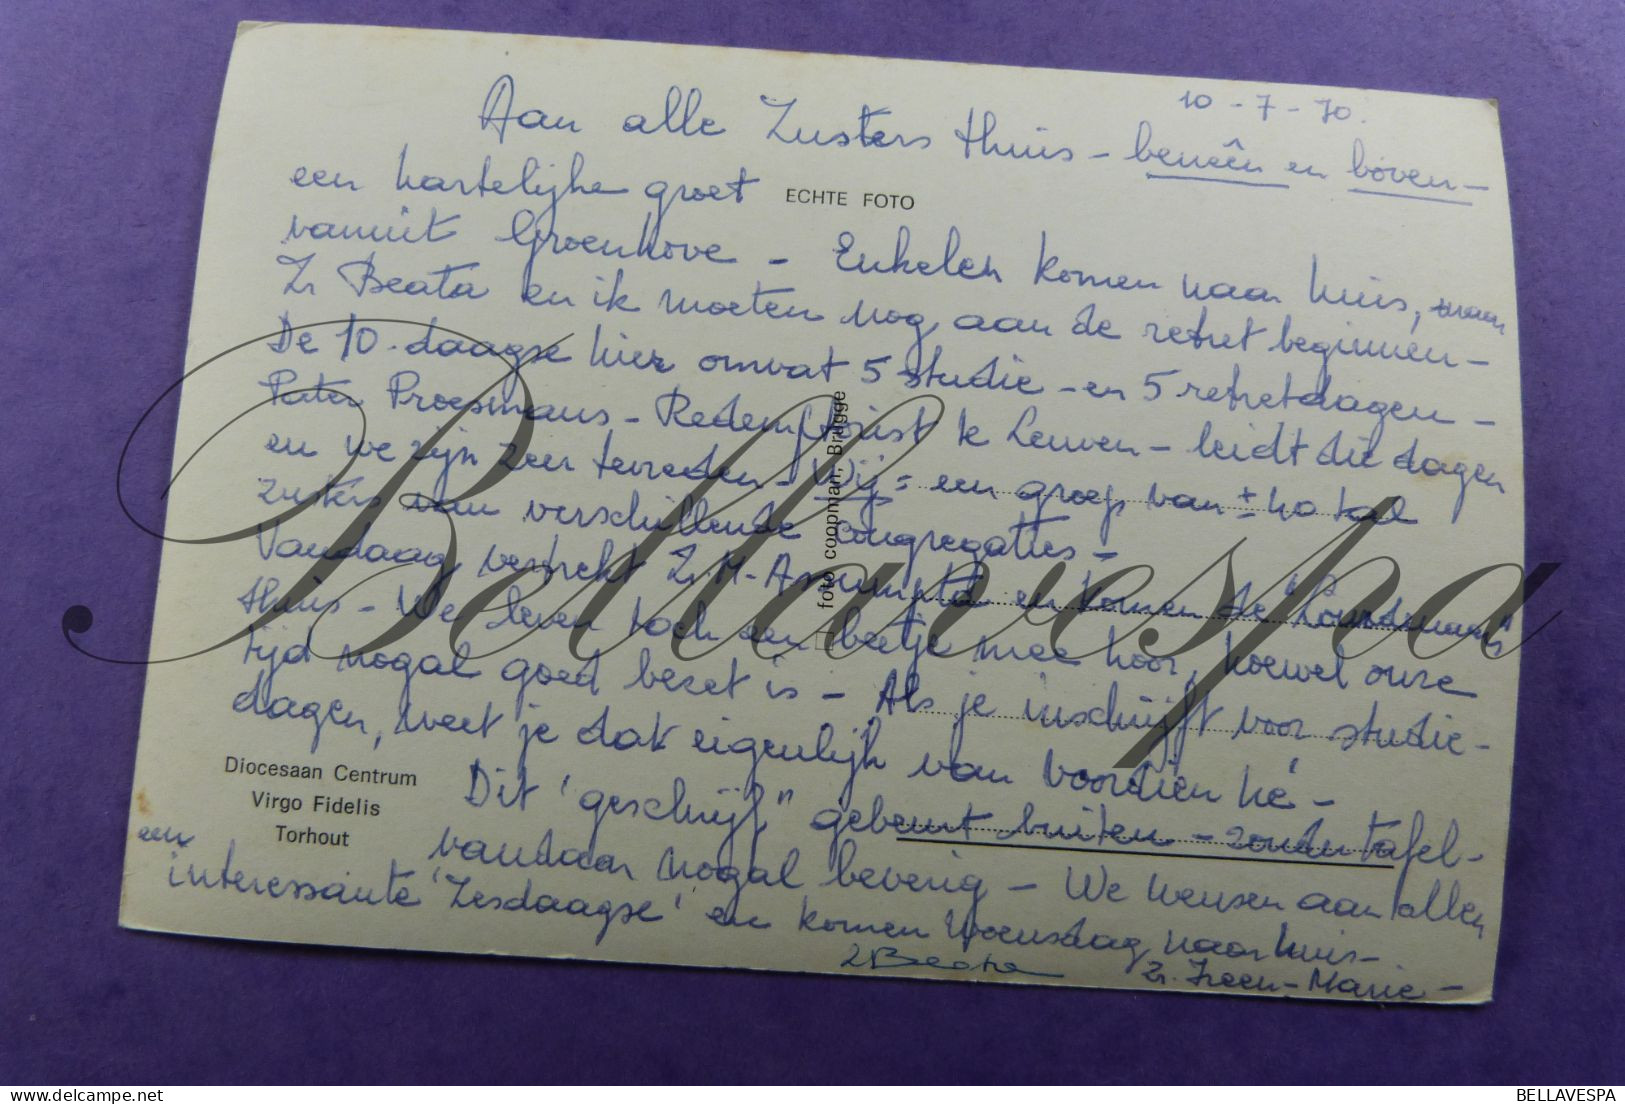 10 - 7 - 70.
Aan alle Zusters thuis - beneên en boven -
een hartelijke groet ECHTE FOTO
vanuit Groenhove - Enkelen komen naar huis, maar
Zr Beata en ik moeten nog aan de retret beginnen -
De 10-daagse hier omvat 5 studie - en 5 retretdagen -
Pater Proesmans - Redemptorist te Leuven - leidt die dagen
en we zijn zeer tevreden - Wij = een groep van ± 40 tal
zusters van verschillende congregaties -
Vandaag vertrekt Zr. M-Assumpta en komen de "Lourdenaars"
thuis - We leven toch een beetje mee hoor, hoewel onze
tijd nogal goed bezet is - Als je inschrijft voor studie-
dagen, weet je dat eigenlijk van voordien hé -
Dit 'geschrijf" gebeurt buiten - zonder tafel -
vandaar nogal beverig - We wensen aan allen
een
interessante 'Zesdaagse' en komen Woensdag naar huis -
Z Beata Zr. Ireen-Marie -
foto coopman, Brugge
Diocesaan Centrum
Virgo Fidelis
Torhout
Bellavespa
BELLAVESPA